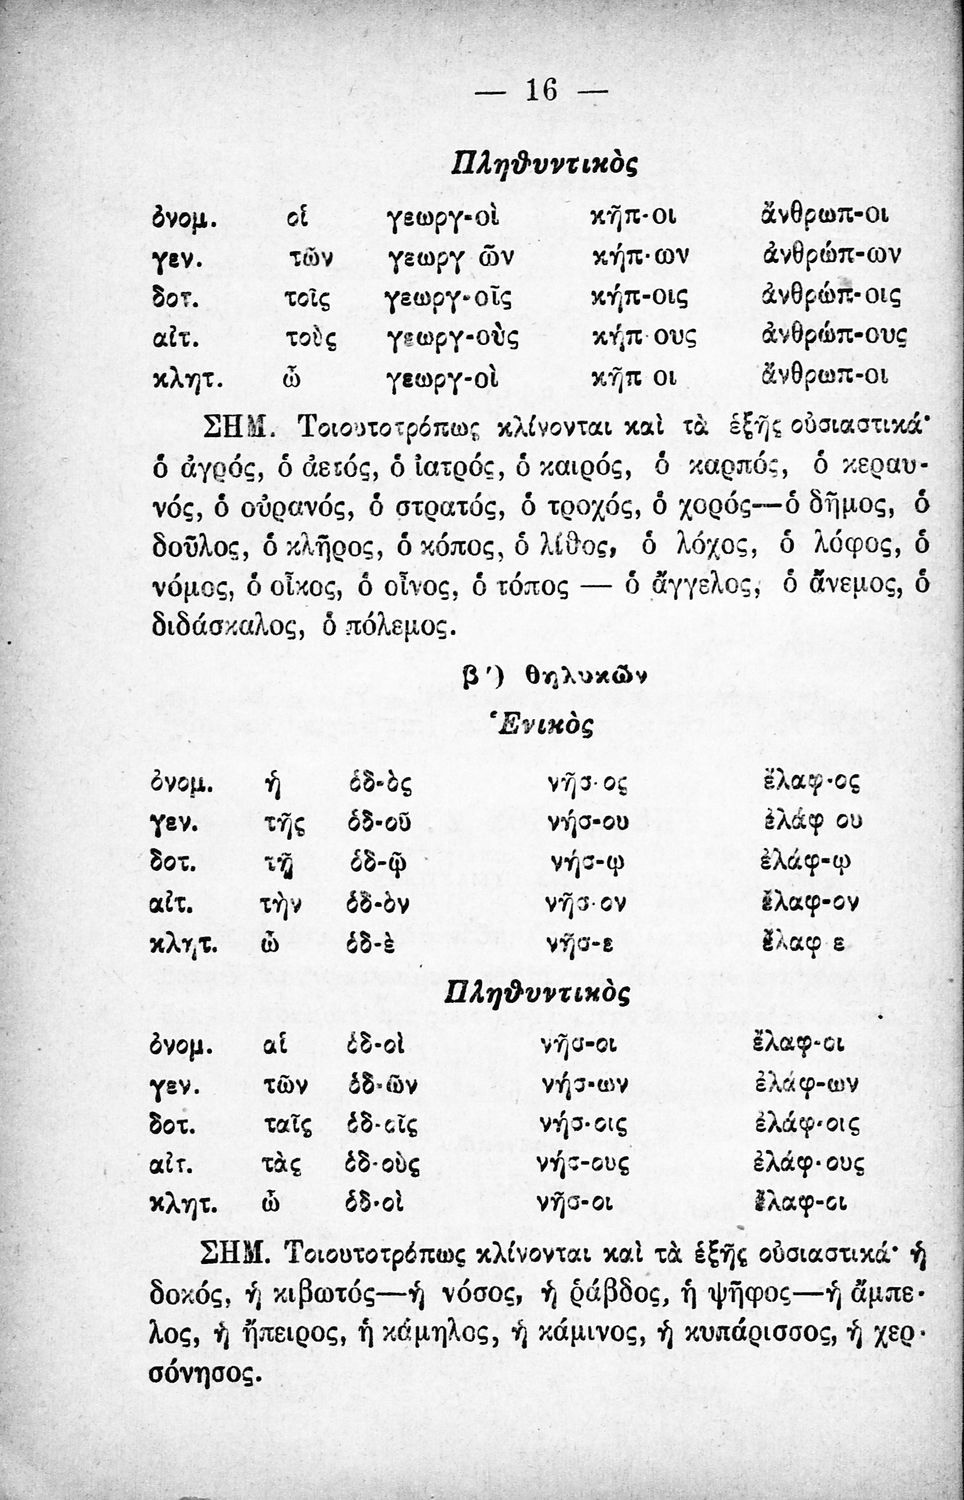 — 16 —
Πληθυντικὸς
ὀνομ. οἱ γεωργ-οὶ κῆπ-οι ἄνθρωπ-οι
γεν. τῶν γεωργ ῶν κήπ-ων ἀνθρώπ-ων
δοτ. τοῖς γεωργ-οῖς κήπ-οις ἀνθρώπ-οις
αἰτ. τοὺς γεωργ-οὺς κήπ ους ἀνθρώπ-ους
κλητ. ὦ γεωργ-οὶ κῆπ οι ἄνθρωπ-οι
ΣΗΜ. Τοιουτοτρόπως κλίνονται καὶ τὰ ἑξῆς οὐσιαστικά·
ὁ ἀγρός, ὁ ἀετός, ὁ ἰατρός, ὁ καιρός, ὁ καρπός, ὁ κεραυ-
νός, ὁ οὐρανός, ὁ στρατός, ὁ τροχός, ὁ χορός—ὁ δῆμος, ὁ
δοῦλος, ὁ κλῆρος, ὁ κόπος, ὁ λίθος, ὁ λόχος, ὁ λόφος, ὁ
νόμος, ὁ οἶκος, ὁ οἶνος, ὁ τόπος — ὁ ἄγγελος, ὁ ἄνεμος, ὁ
διδάσκαλος, ὁ πόλεμος.
β΄) θηλυκῶν
Ἑνικὸς
ὀνομ. ἡ ὁδ-ὸς νῆσ-ος ἔλαφ-ος
γεν. τῆς ὁδ-οῦ νήσ-ου ἐλάφ ου
δοτ. τῇ ὁδ-ῷ νήσ-ῳ ἐλάφ-ῳ
αἰτ. τὴν ὁδ-ὸν νῆσ-ον ἔλαφ-ον
κλητ. ὦ ὁδ-ὲ νῆσ-ε ἔλαφ ε
Πληθυντικὸς
ὀνομ. αἱ ὁδ-οὶ νῆσ-οι ἔλαφ-οι
γεν. τῶν ὁδ-ῶν νήσ-ων ἐλάφ-ων
δοτ. ταῖς ὁδ-οῖς νήσ-οις ἐλάφ-οις
αἰτ. τὰς ὁδ-οὺς νήσ-ους ἐλάφ-ους
κλητ. ὦ ὁδ-οὶ νῆσ-οι ἔλαφ-οι
ΣΗΜ. Τοιουτοτρόπως κλίνονται καὶ τὰ ἑξῆς οὐσιαστικά· ἡ
δοκός, ἡ κιβωτός—ἡ νόσος, ἡ ῥάβδος, ἡ ψῆφος—ἡ ἄμπε-
λος, ἡ ἤπειρος, ἡ κάμηλος, ἡ κάμινος, ἡ κυπάρισσος, ἡ χερ-
σόνησος.